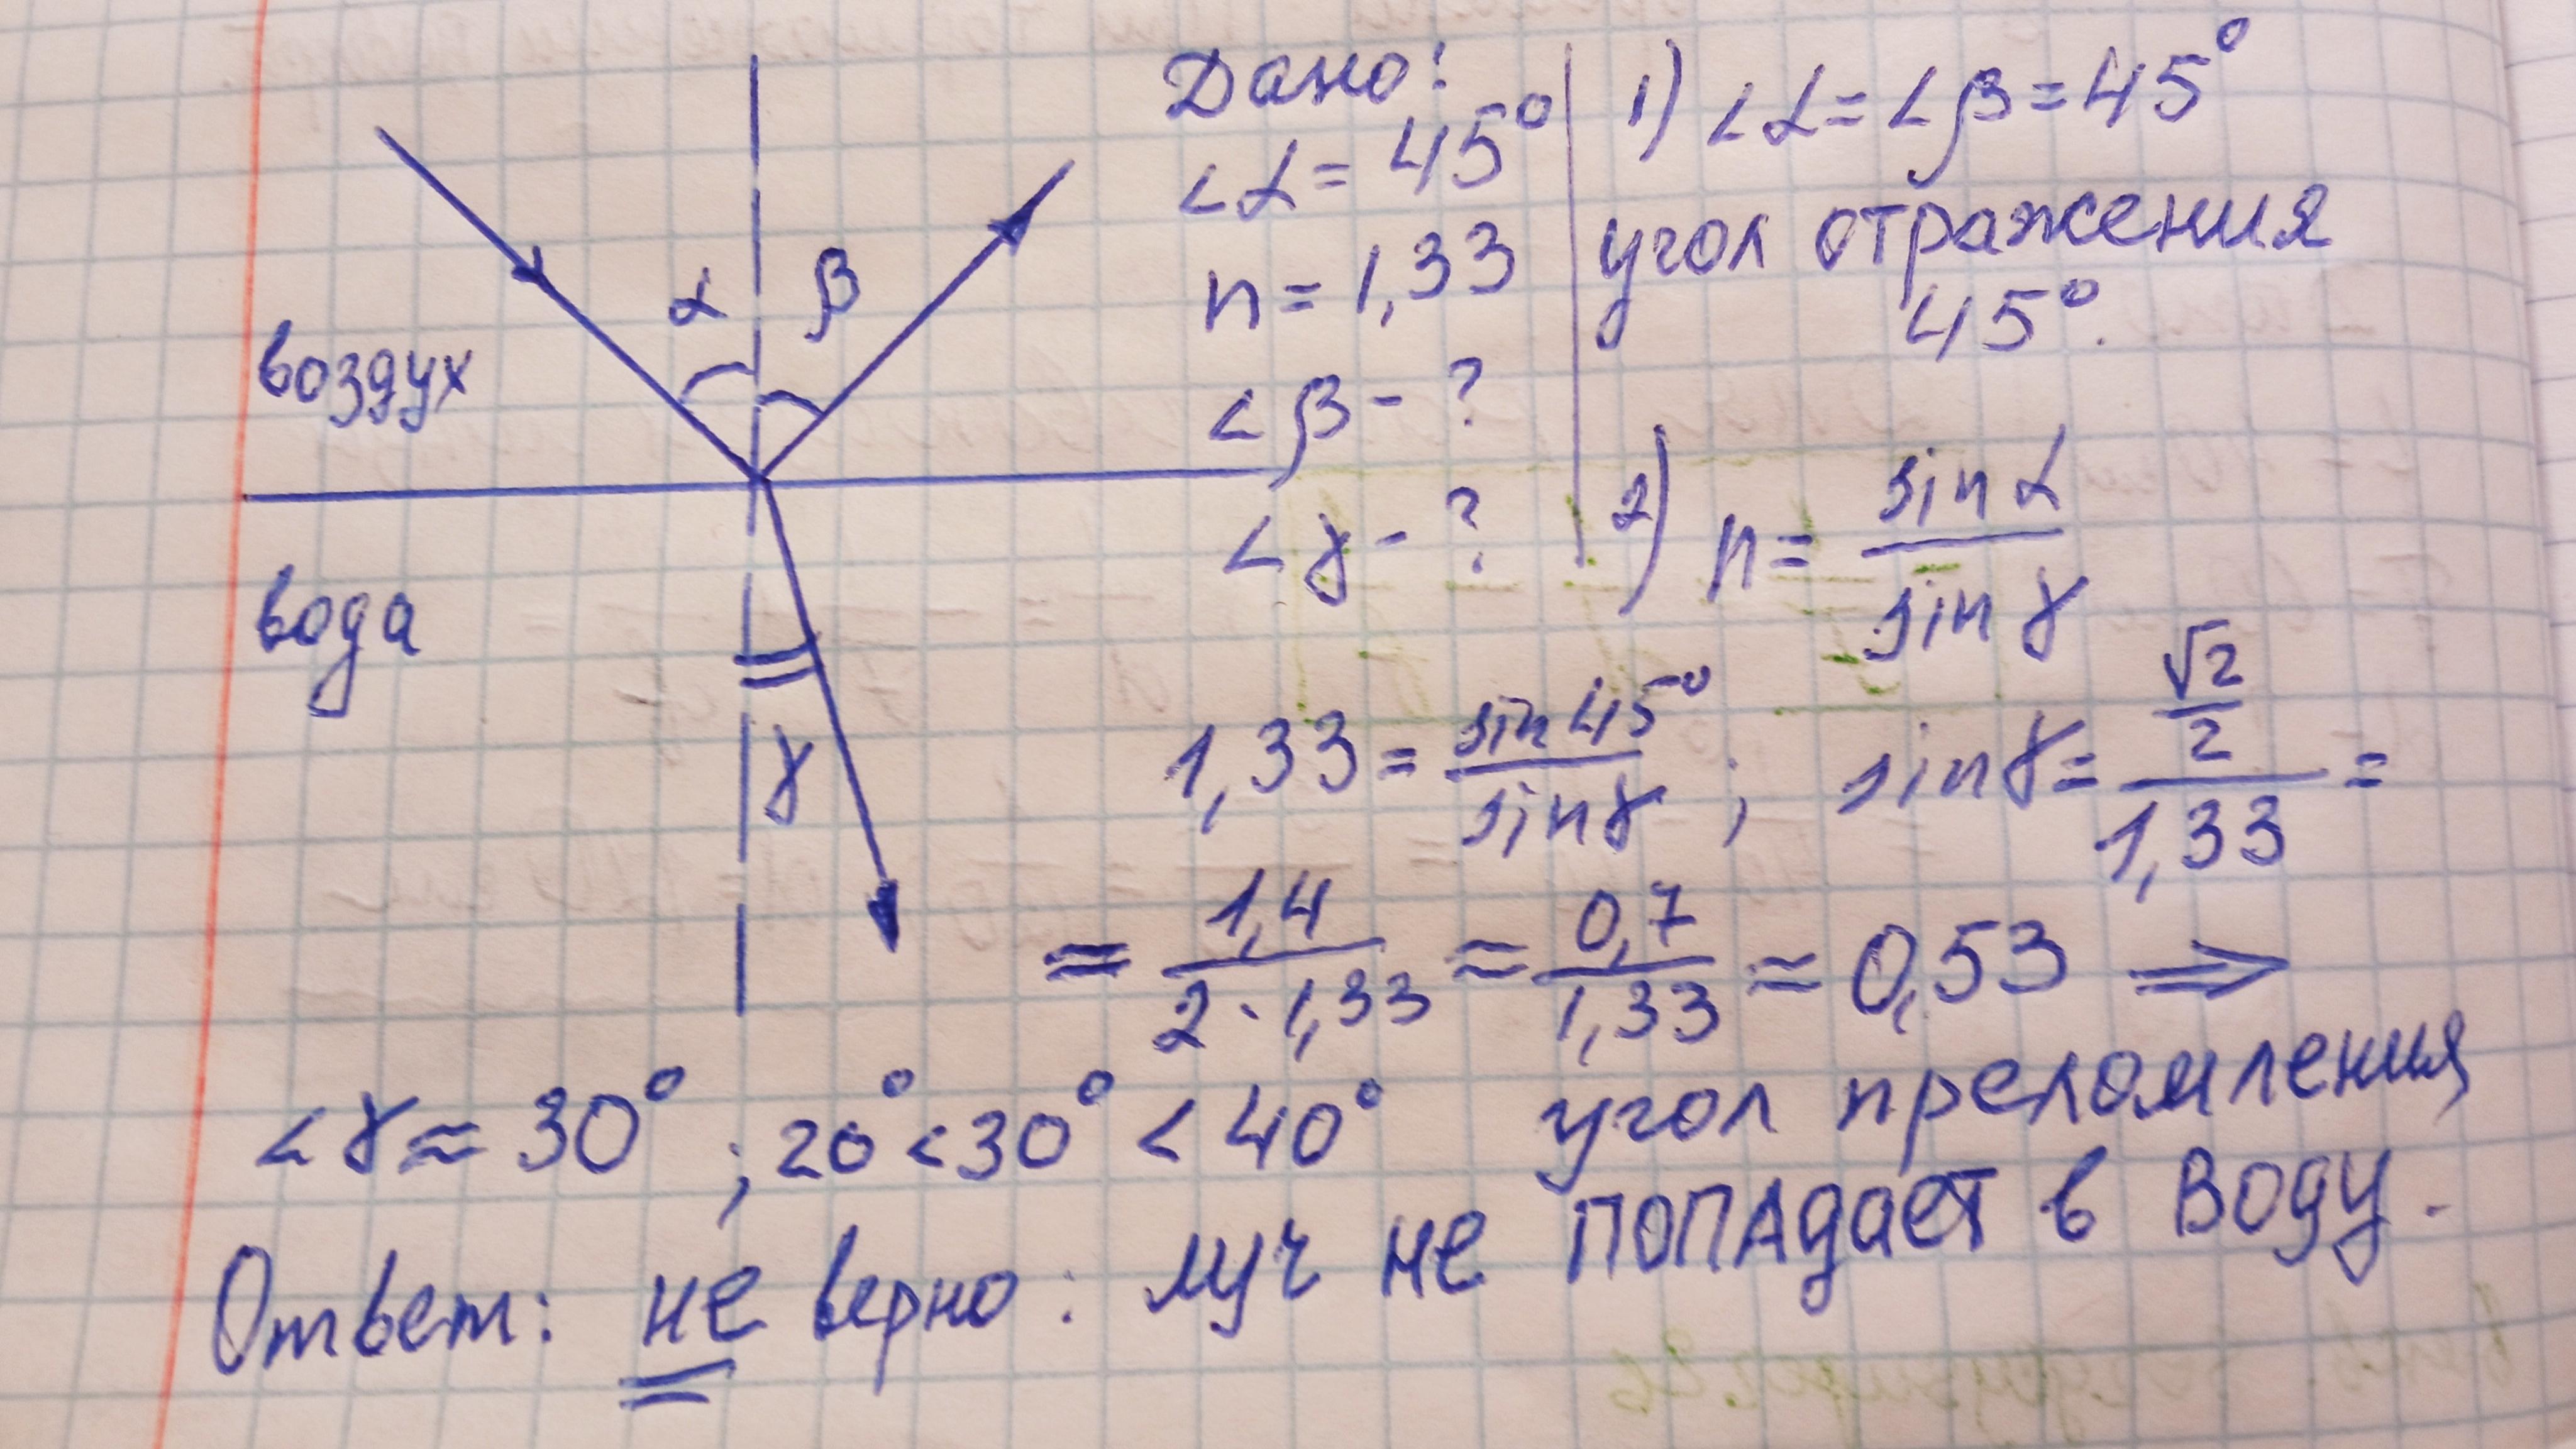 Дано:
∠α = 45°
n = 1,33
∠β - ?
∠γ - ?
1) ∠α = ∠β = 45°
угол отражения
45°.
2) n = sin α / sin γ
α β
воздух
вода
γ
1,33 = sin 45° / sin γ ; sin γ = (√2/2) / 1,33 =
= 1,4 / (2 · 1,33) ≈ 0,7 / 1,33 ≈ 0,53 ⇒
∠γ ≈ 30° ; 20° < 30° < 40° угол преломления
Ответ: не верно: луч не ПОПАдает в воду.